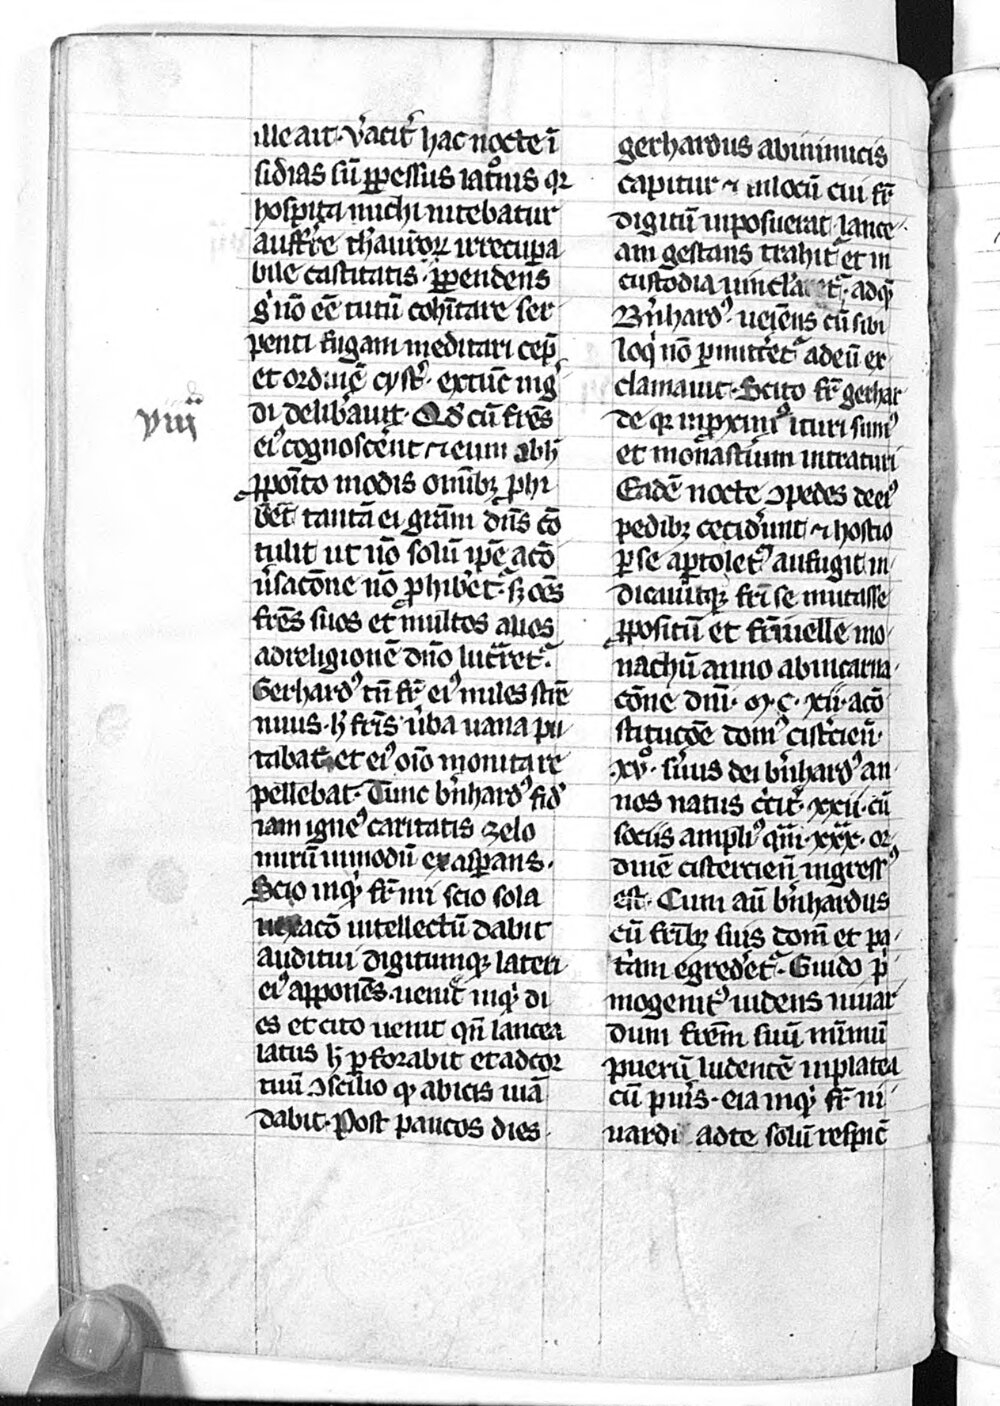 ille ait · v̾acit̾ hac nocte ī
sidias sū ꝑpessus latōnis qꝛ
hospita michi nitebatur
auffr̄e th̾auroꝝ irrecupa
bile castitatis · ꝑpendens
g̾ nō eē tutū coh̾itare ser
penti fugam meditari cep̄
et ordinē cyst̾ · extūc ing̾
di delib̾auit · Qd̾ cū fr̄es
ei᷒ cognoscēnt ⁊ eum abh̾
ꝓpoīto modis omībꝫ ꝓhi
b̾et tantā ei gr̄am dn̄s cō
tulit ut nō solū ip̄e acō
u̾sacōne nō ꝓhib̾et̾ · sꝫ oēs
fr̄es suos et multos alios
ad religionē dn̄o luc̾ret̾ ·
Gerhard᷒ tn̄ fr̄ ei᷒ miles stre
nuus · h̾ fr̄is u̾ba uana pu
tabat et ei᷒ oīo monita re
pellebat · Tunc b̾nhard᷒ fid̾
iam igne᷒ caritatis zelo
mirū inmodū exasꝑans ·
Scio inqͥ fr̄ mi scio sola
uexacō intellectū dabit
auditui digitumqꝫ lateri
ei᷒ apponēs · ueniꞇ̄ inqͥ di
es et cito ueniet qn̄ lancea
latus h̾ ꝑforabit et ad cor
tuū ꝯscilio qͦ abicis uiā
dabit · Post paucos dies
viiii
gerhardus ab inimicis
capitur ⁊ in locū cui fr̄
digitū inposuerat lance
am gestans trahit̾ et in
custodia uincl'at̾ · ad qͥ
B̾nhard᷒ ueiēns cū sibi
loqͥ nō ꝑmitt̾et̾ ad eū ex
clamauit · Scito fr̄ gerhar
de qꝛ inpximͦ ituri sum᷒
et monast̾ium intraturi
Eadē nocte ꝯpedes de ei᷒
pedibꝫ cecid̾unt ⁊ hostio
ꝑ se aꝑto let᷒ aufugit in
dicauitqꝫ fr̄i se mutasse
ꝓpositū et fi̾ri uelle mo
nachū anno ab incarna
cōne dnī · m · c · xii · acō
stitucōe dom᷒ cist̾cien̄ ·
xvͦ · s̾uus dei b̾nhard᷒ an
nos natus c̾cit̾ · xxii · cū
sociis ampli᷒ qm̄ · xxx · or
dinē cistercien̄ ingress᷒
est · Cum aū b̾nhardus
cū fr̄ibꝫ suis domū et pa
t̾nam egred̾et̾ · Guido pͥ
mogenit᷒ uidens niuar
dum fr̄em suū minimū
puerū ludentē in platea
cū pu̾is · eia inqͥ fr̄ ni
uardi ad te solū respic̄